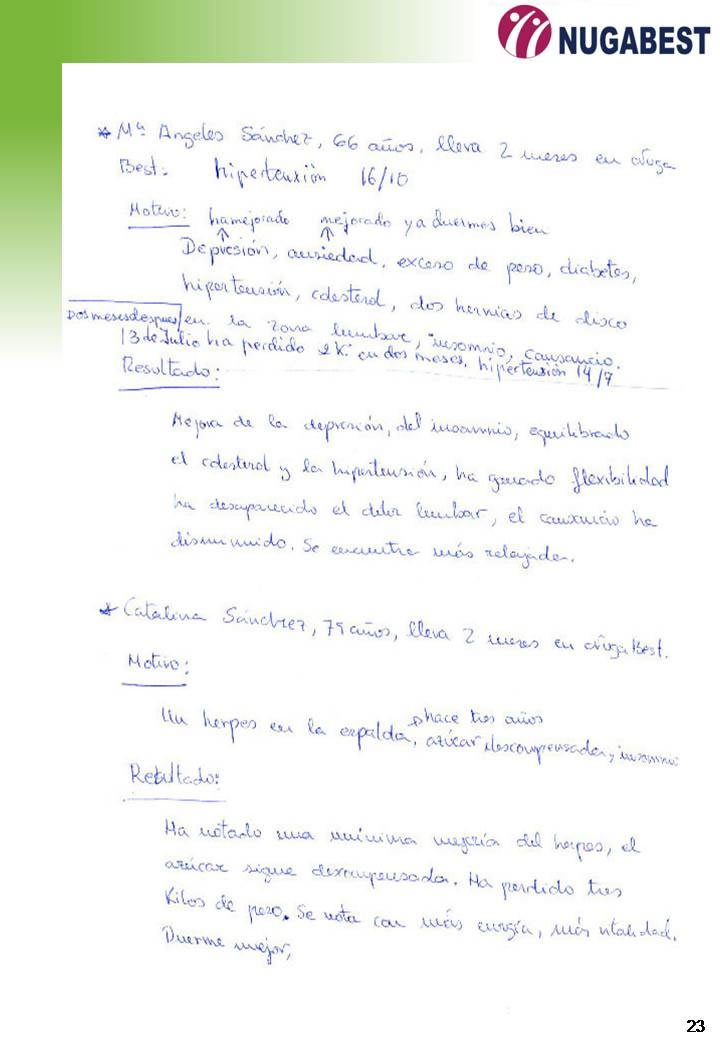 NUGABEST
* Mª Angeles Sánchez, 66 años, lleva 2 meses en Nuga
Best: hipertensión 16/10
Motivo: ha mejorado mejorado ya duermes bien
Depresión, ansiedad, exceso de peso, diabetes,
hipertensión, colesterol, dos hernias de disco
Dos meses despues en la zona lumbar, insomnio, cansancio.
13 de Julio ha perdido 2 K. en dos meses, hipertensión 14/7
Resultado:
Mejora de la depresión, del insomnio, equilibrado
el colesterol y la hipertensión, ha ganado flexibilidad
ha desaparecido el dolor lumbar, el cansancio ha
disminuido. Se encuentra más relajada.
* Catalina Sánchez, 79 años, lleva 2 meses en Nuga Best.
Motivo:
hace tres años
Un herpes en la espalda, azúcar descompensada, insomnio
Resultado:
Ha notado una mínima mejoría del herpes, el
azúcar sigue descompensada. Ha perdido tres
Kilos de peso. Se nota con más energía, más vitalidad.
Duerme mejor,
23